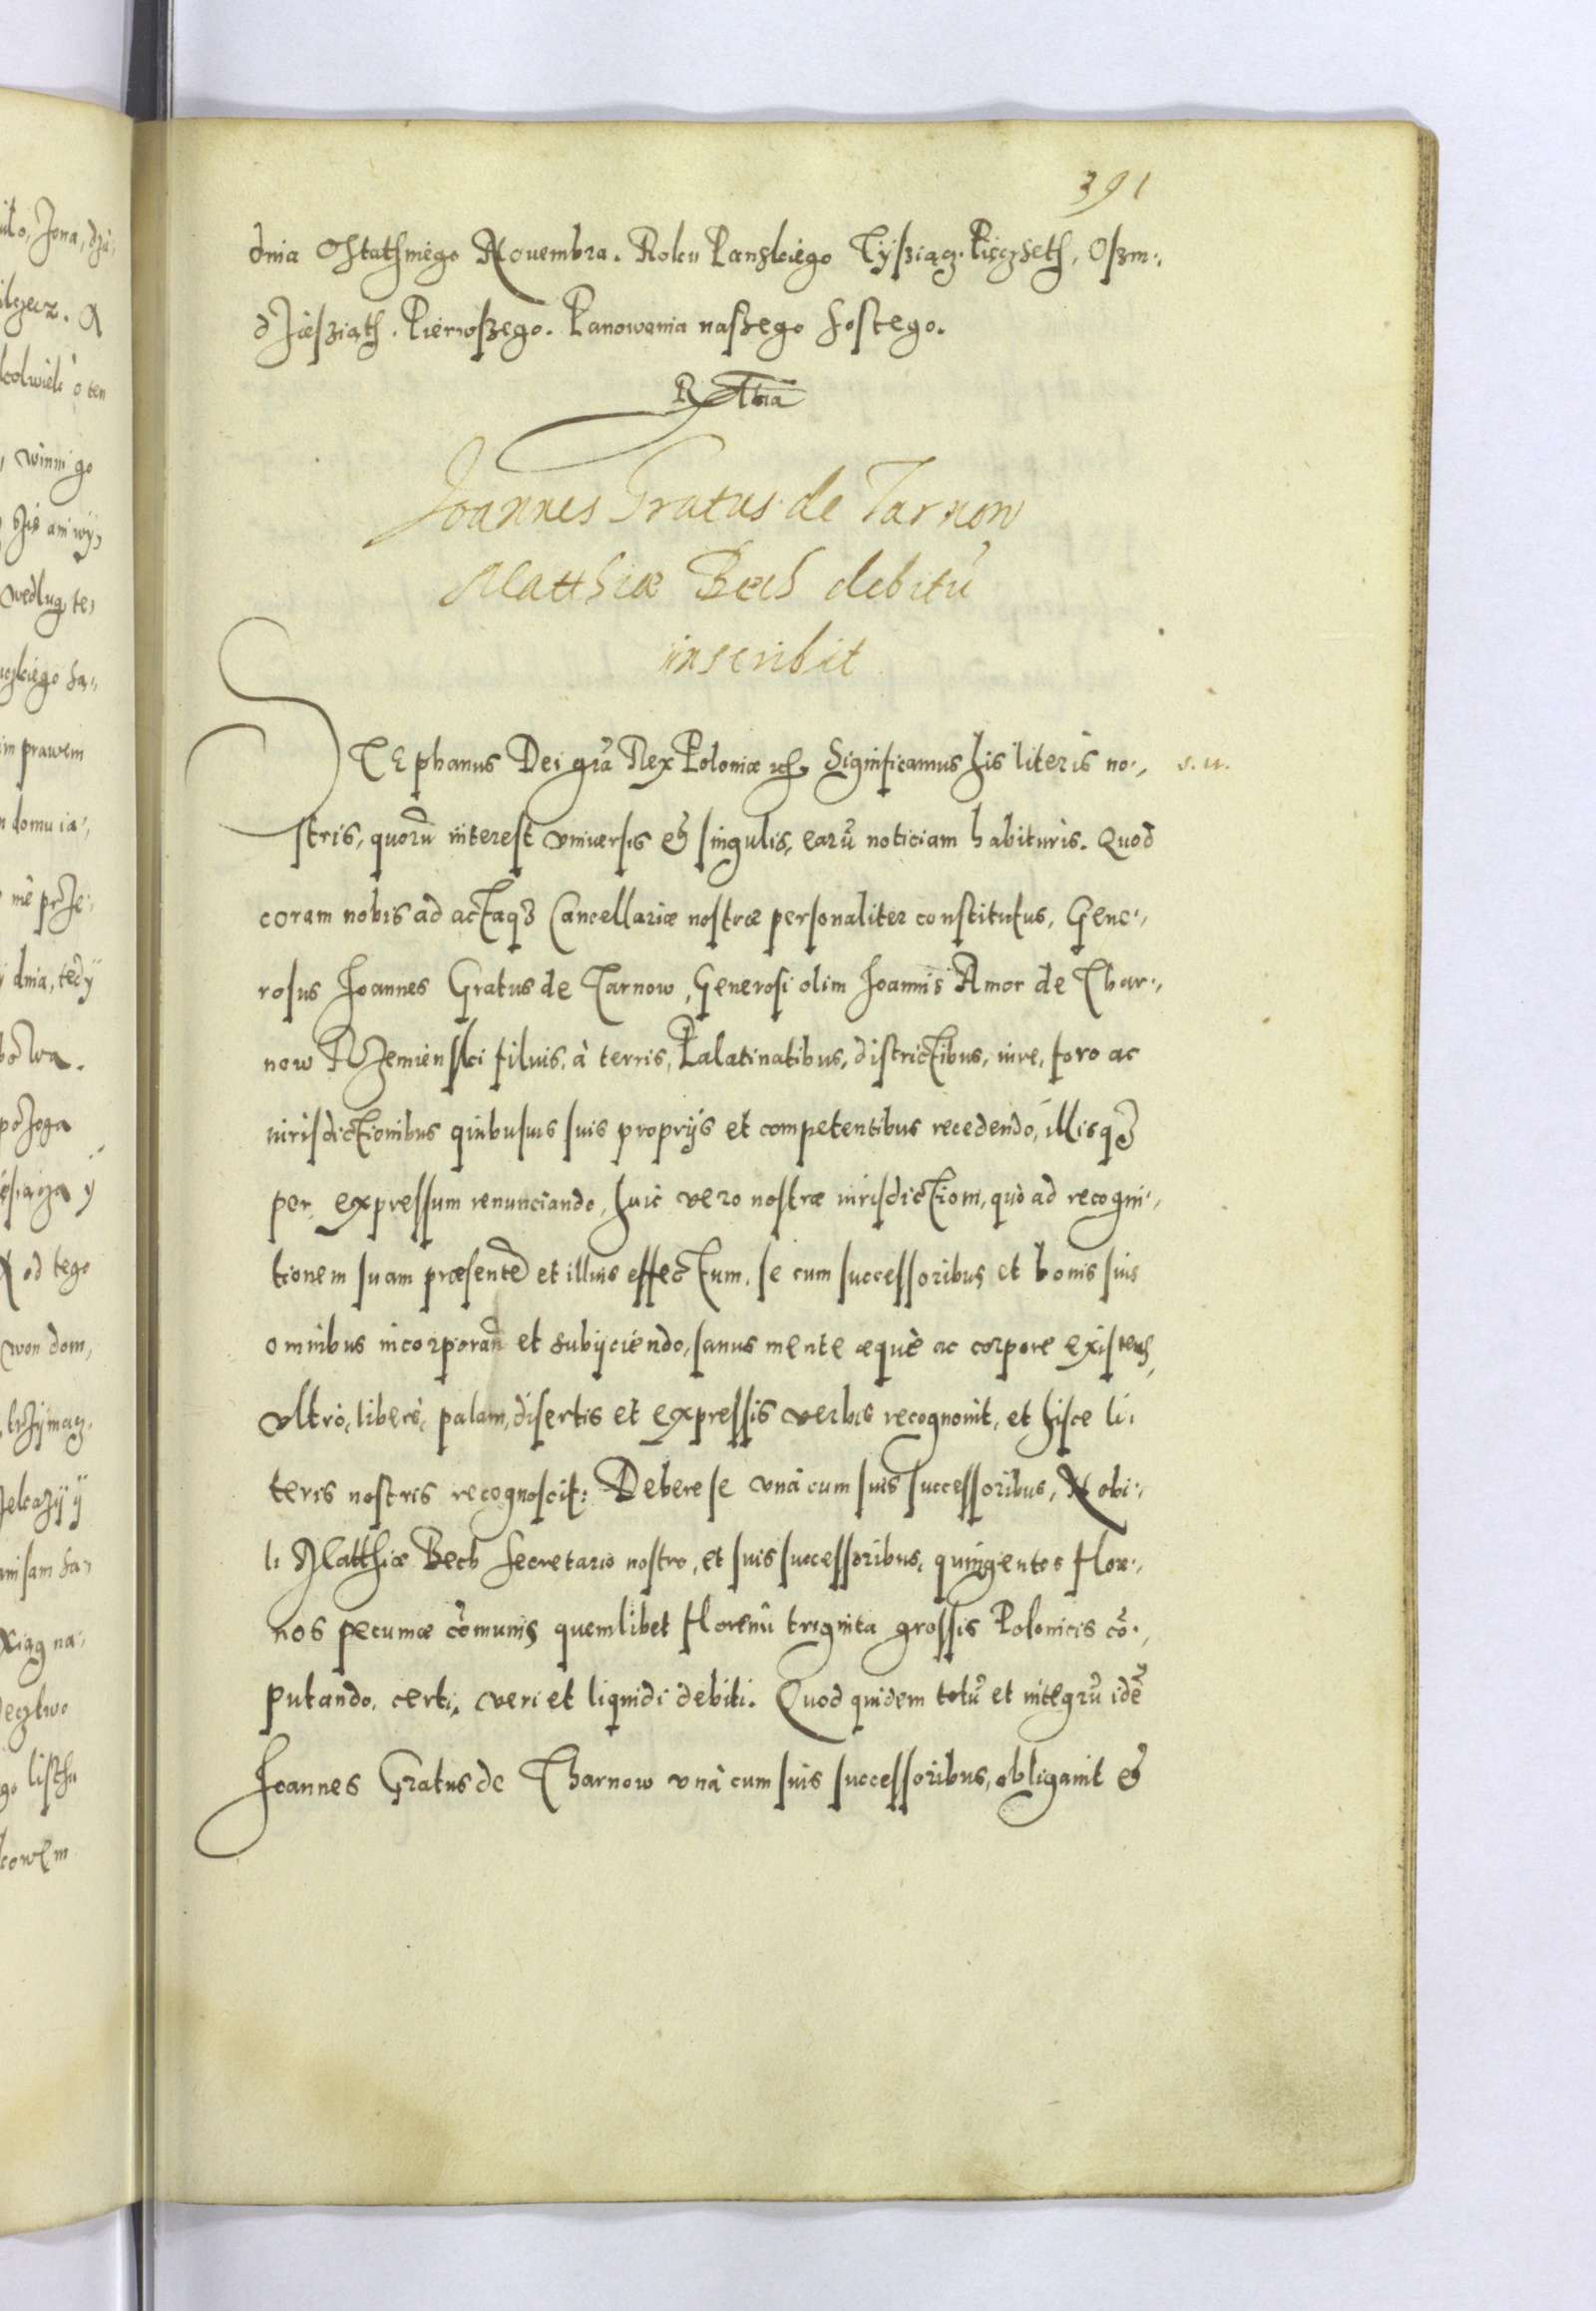 391
dnia Ostathniego Nouembra. Roku Panskiego Tysiącz. Pięczseth, Osm..
dzieśziąth. Pierwszego. Panowania naszego szostego.
Joannes Gratus de Tarnow
Matthiæ Bech debitū
inscribit
STEphanus Dei grā Rex Poloniæ etc. Significamus his literis no.. s. u.
stris, quorū interest vniuersis et singulis, earū noticiam habituris. Quod
coram nobis ad actaq3 Cancellariæ nostræ personaliter constitutus, Gene..
rosus Joannes Gratus de Tarnow, Generosi olim Joannis Amor de Thar..
now Rzemienski filius, à terris, Palatinatibus, districtibus, iure, foro ac
iurisdictionibus quibusuis suis proprijs et competentibus recedendo, illisq3
per expressum renunciando, huic vero nostræ iurisdictioni, quò ad recogni..
tionem suam præsentē et illius effectum, se cum successoribus et bonis suis
omnibus incorporan̄ et subijciendo, sanus mente æquè ac corpore existens,
vltrò, liberè, palam, disertis et expressis verbis recognouit, et hisce li..
teris nostris recognoscit: Debere se vnà cum suis successoribus, Nobi..
li Matthiæ Bech Secretario nostro, et suis successoribus, quingentos flore..
nos pecuniæ cōmunis quemlibet florenū triginta grossis Polonicis cō..
putando, certi, veri et liquidi debiti. Quod quidem totū et integrū idē
Joannes Gratus de Tharnow vnà cum suis successoribus, obligauit et